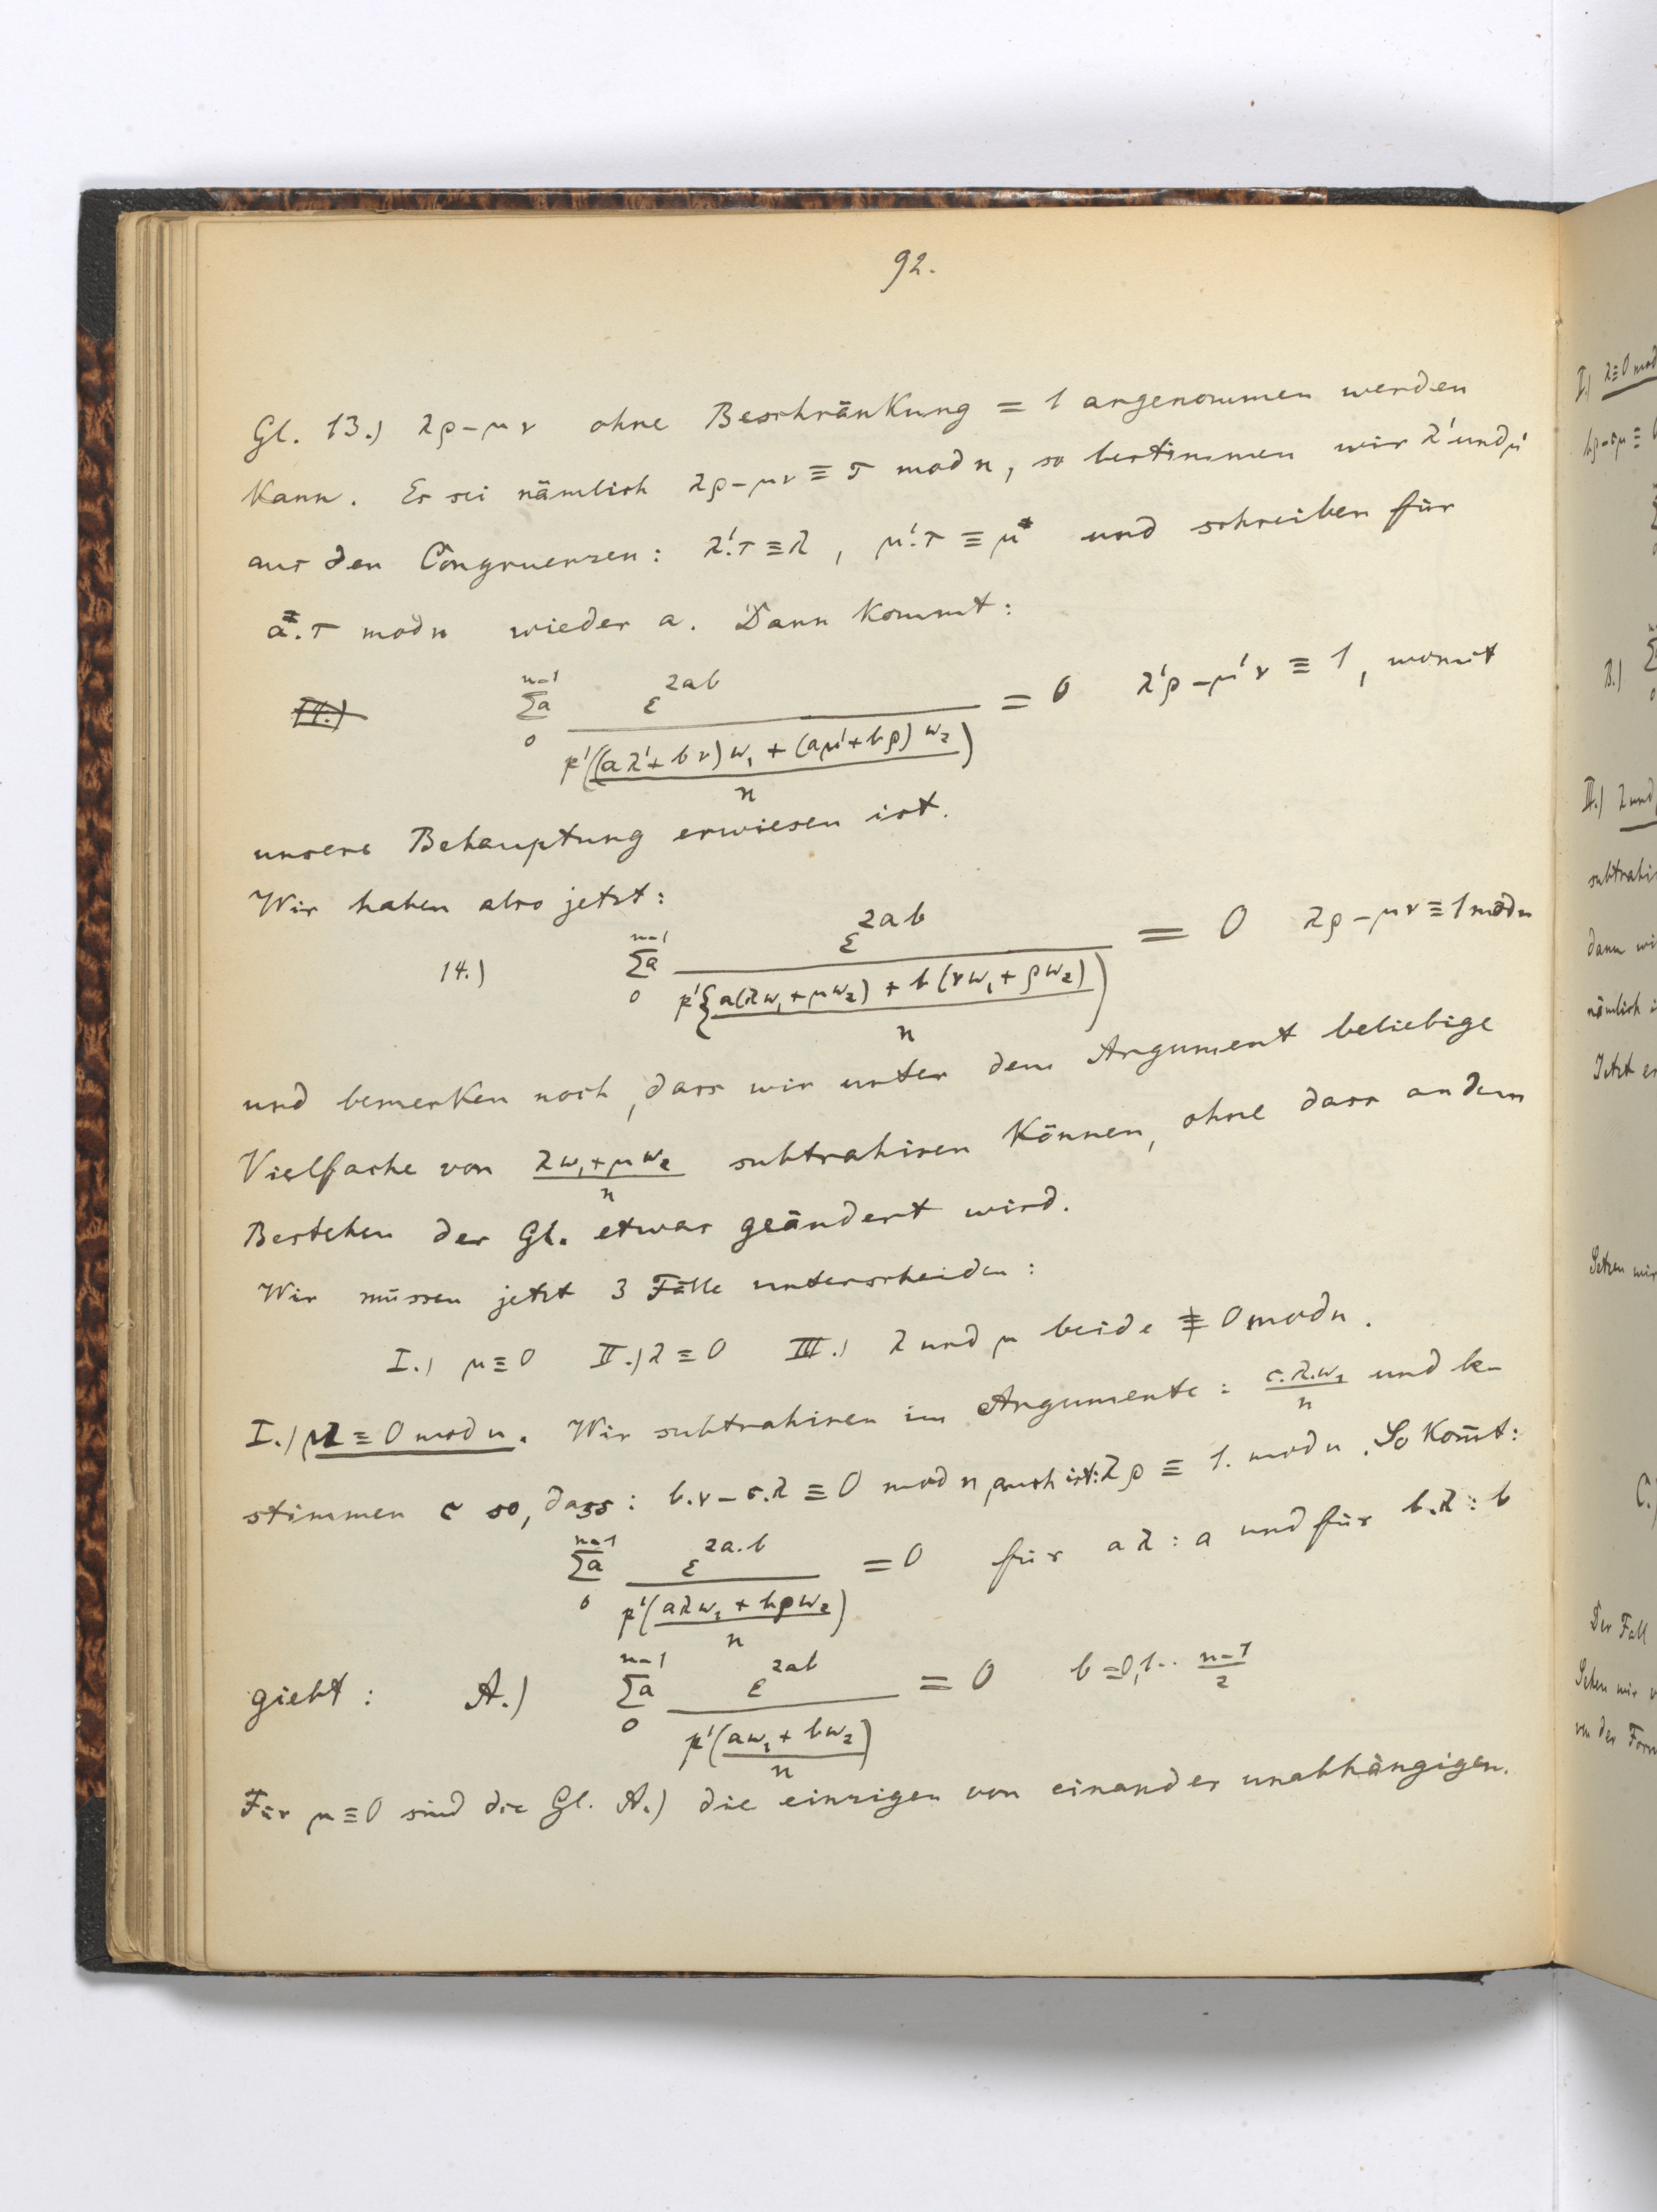 92.
Gl. 13.) λρ-μν ohne Beschränkung = 1 angenommen werden
kann. Es sei nämlich λρ-μν ≡ τ mod n, so bestimmen wir λ' und μ'
aus den Congruenzen: λ'.τ ≡ λ, μ'.τ ≡ μ und schreiben für
a.τ mod n wieder a. Dann kommt:
14.) n-1 Σa 0 ε^2ab / p'((aλ'+bν)w₁ + (aμ'+bρ)w₂ / n) = 0 λ'ρ-μ'ν ≡ 1, womit
unsere Behauptung erwiesen ist.
Wir haben also jetzt:
14.) n-1 Σa 0 ε^2ab / p'{a(λw₁+μw₂) + b(νw₁+ρw₂) / n) = 0 λρ-μν ≡ 1 mod n
und bemerken noch, dass wir unter dem Argument beliebige
Vielfache von λw₁+μw₂ / n subtrahiren können, ohne dass an dem
Bestehen der Gl. etwas geändert wird.
Wir müssen jetzt 3 Fälle unterscheiden:
I.) μ ≡ 0 II.) λ ≡ 0 III.) λ und μ beide ≢ 0 mod n.
I.) μ ≡ 0 mod n. Wir subtrahiren im Argumente: c.λ.w₁ / n und be-
stimmen c so, dass: b.ν - c.λ ≡ 0 mod n, auch ist: λρ ≡ 1. mod n. So kom̄t:
n-1 Σa 0 ε^2a.b / p'(aλw₁ + bρw₂ / n) = 0 für aλ : a und für b.λ : b
giebt: A.) n-1 Σa 0 ε^2ab / p'(aw₁ + bw₂ / n) = 0 b = 0,1.. n-1 / 2
Für μ ≡ 0 sind die Gl. A.) die einzigen von einander unabhängigen.
I.) λ ≡ 0 mod
B.)
II.) λ und
subtrahi
dann wi
nämlich i
Jetzt er
Setzen wir
C.)
Der Fall
Setzen wir
von der Form